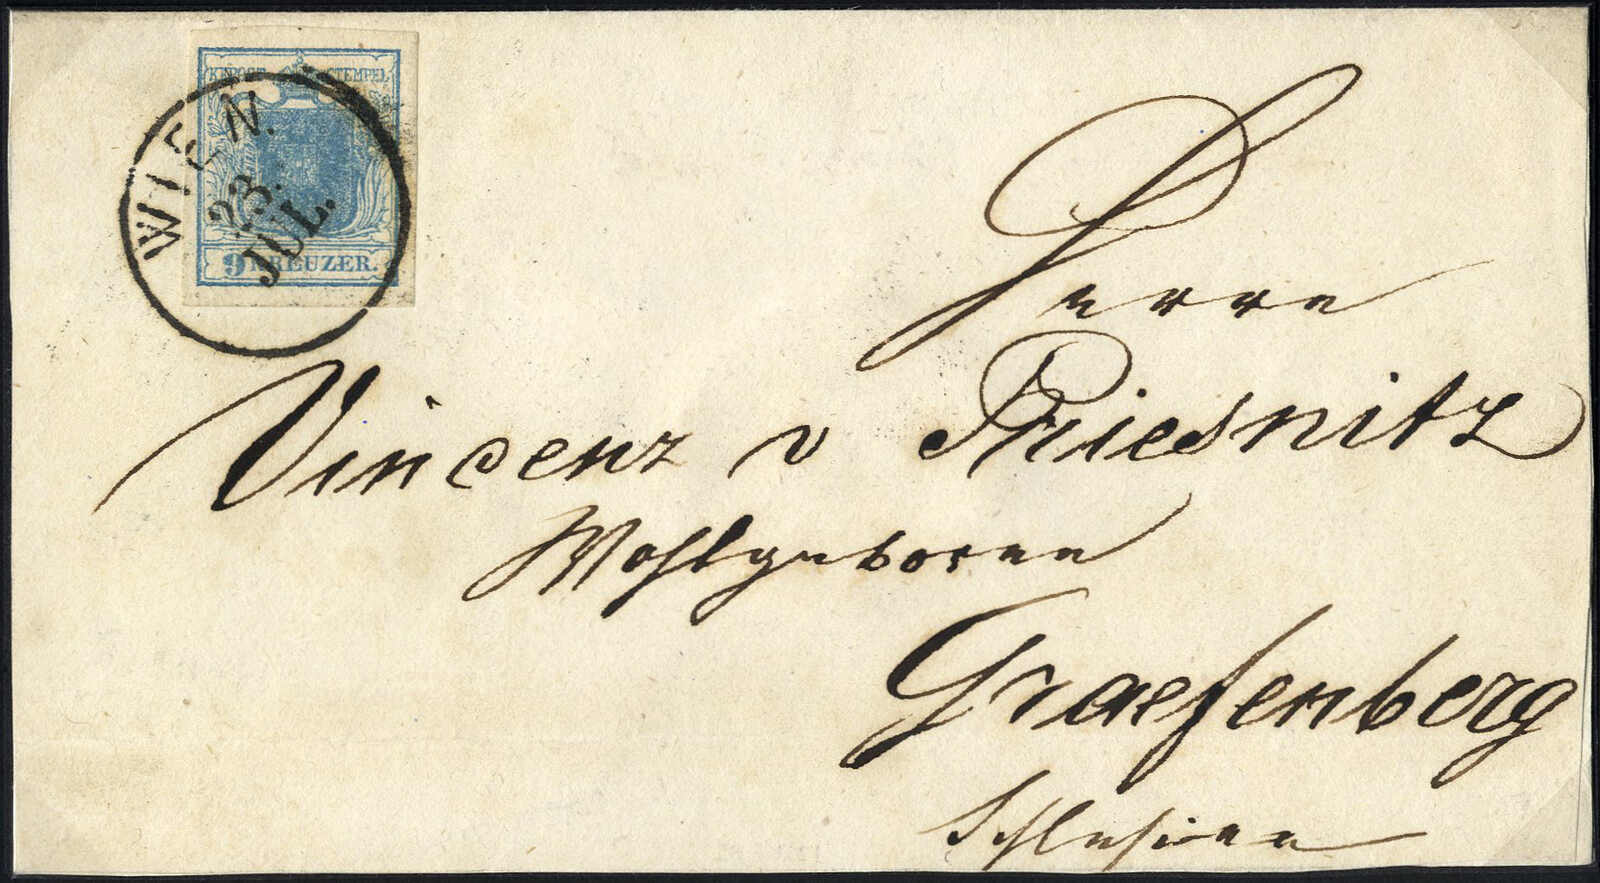 K K POST-STEMPEL
WIEN.
23.
JUL.
9 KREUZER.
Herrn
Vincenz v Priesnitz
Wohlgeboren
Graefenberg
Schlesien